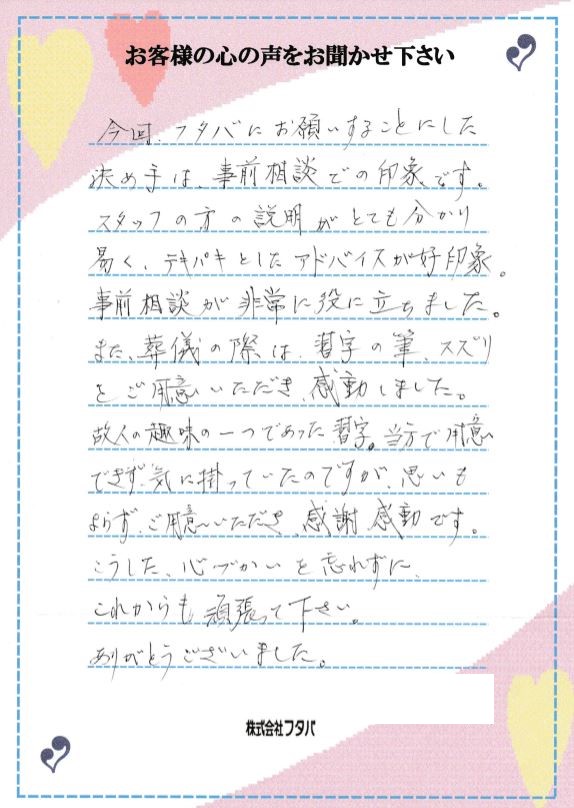 お客様の心の声をお聞かせ下さい
今回、フタバにお願いすることにした
決め手は、事前相談での印象です。
スタッフの方の説明がとても分かり
易く、テキパキとしたアドバイスが好印象。
事前相談が非常に役に立ちました。
また、葬儀の際は、習字の筆、スズリ
をご用意いただき、感動しました。
故人の趣味の一つであった習字。当方で用意
できず、気に掛っていたのですが、思いも
よらず、ご用意いただき、感謝感動です。
こうした、心づかいを忘れずに、
これからも頑張って下さい。
ありがとうございました。
株式会社フタバ